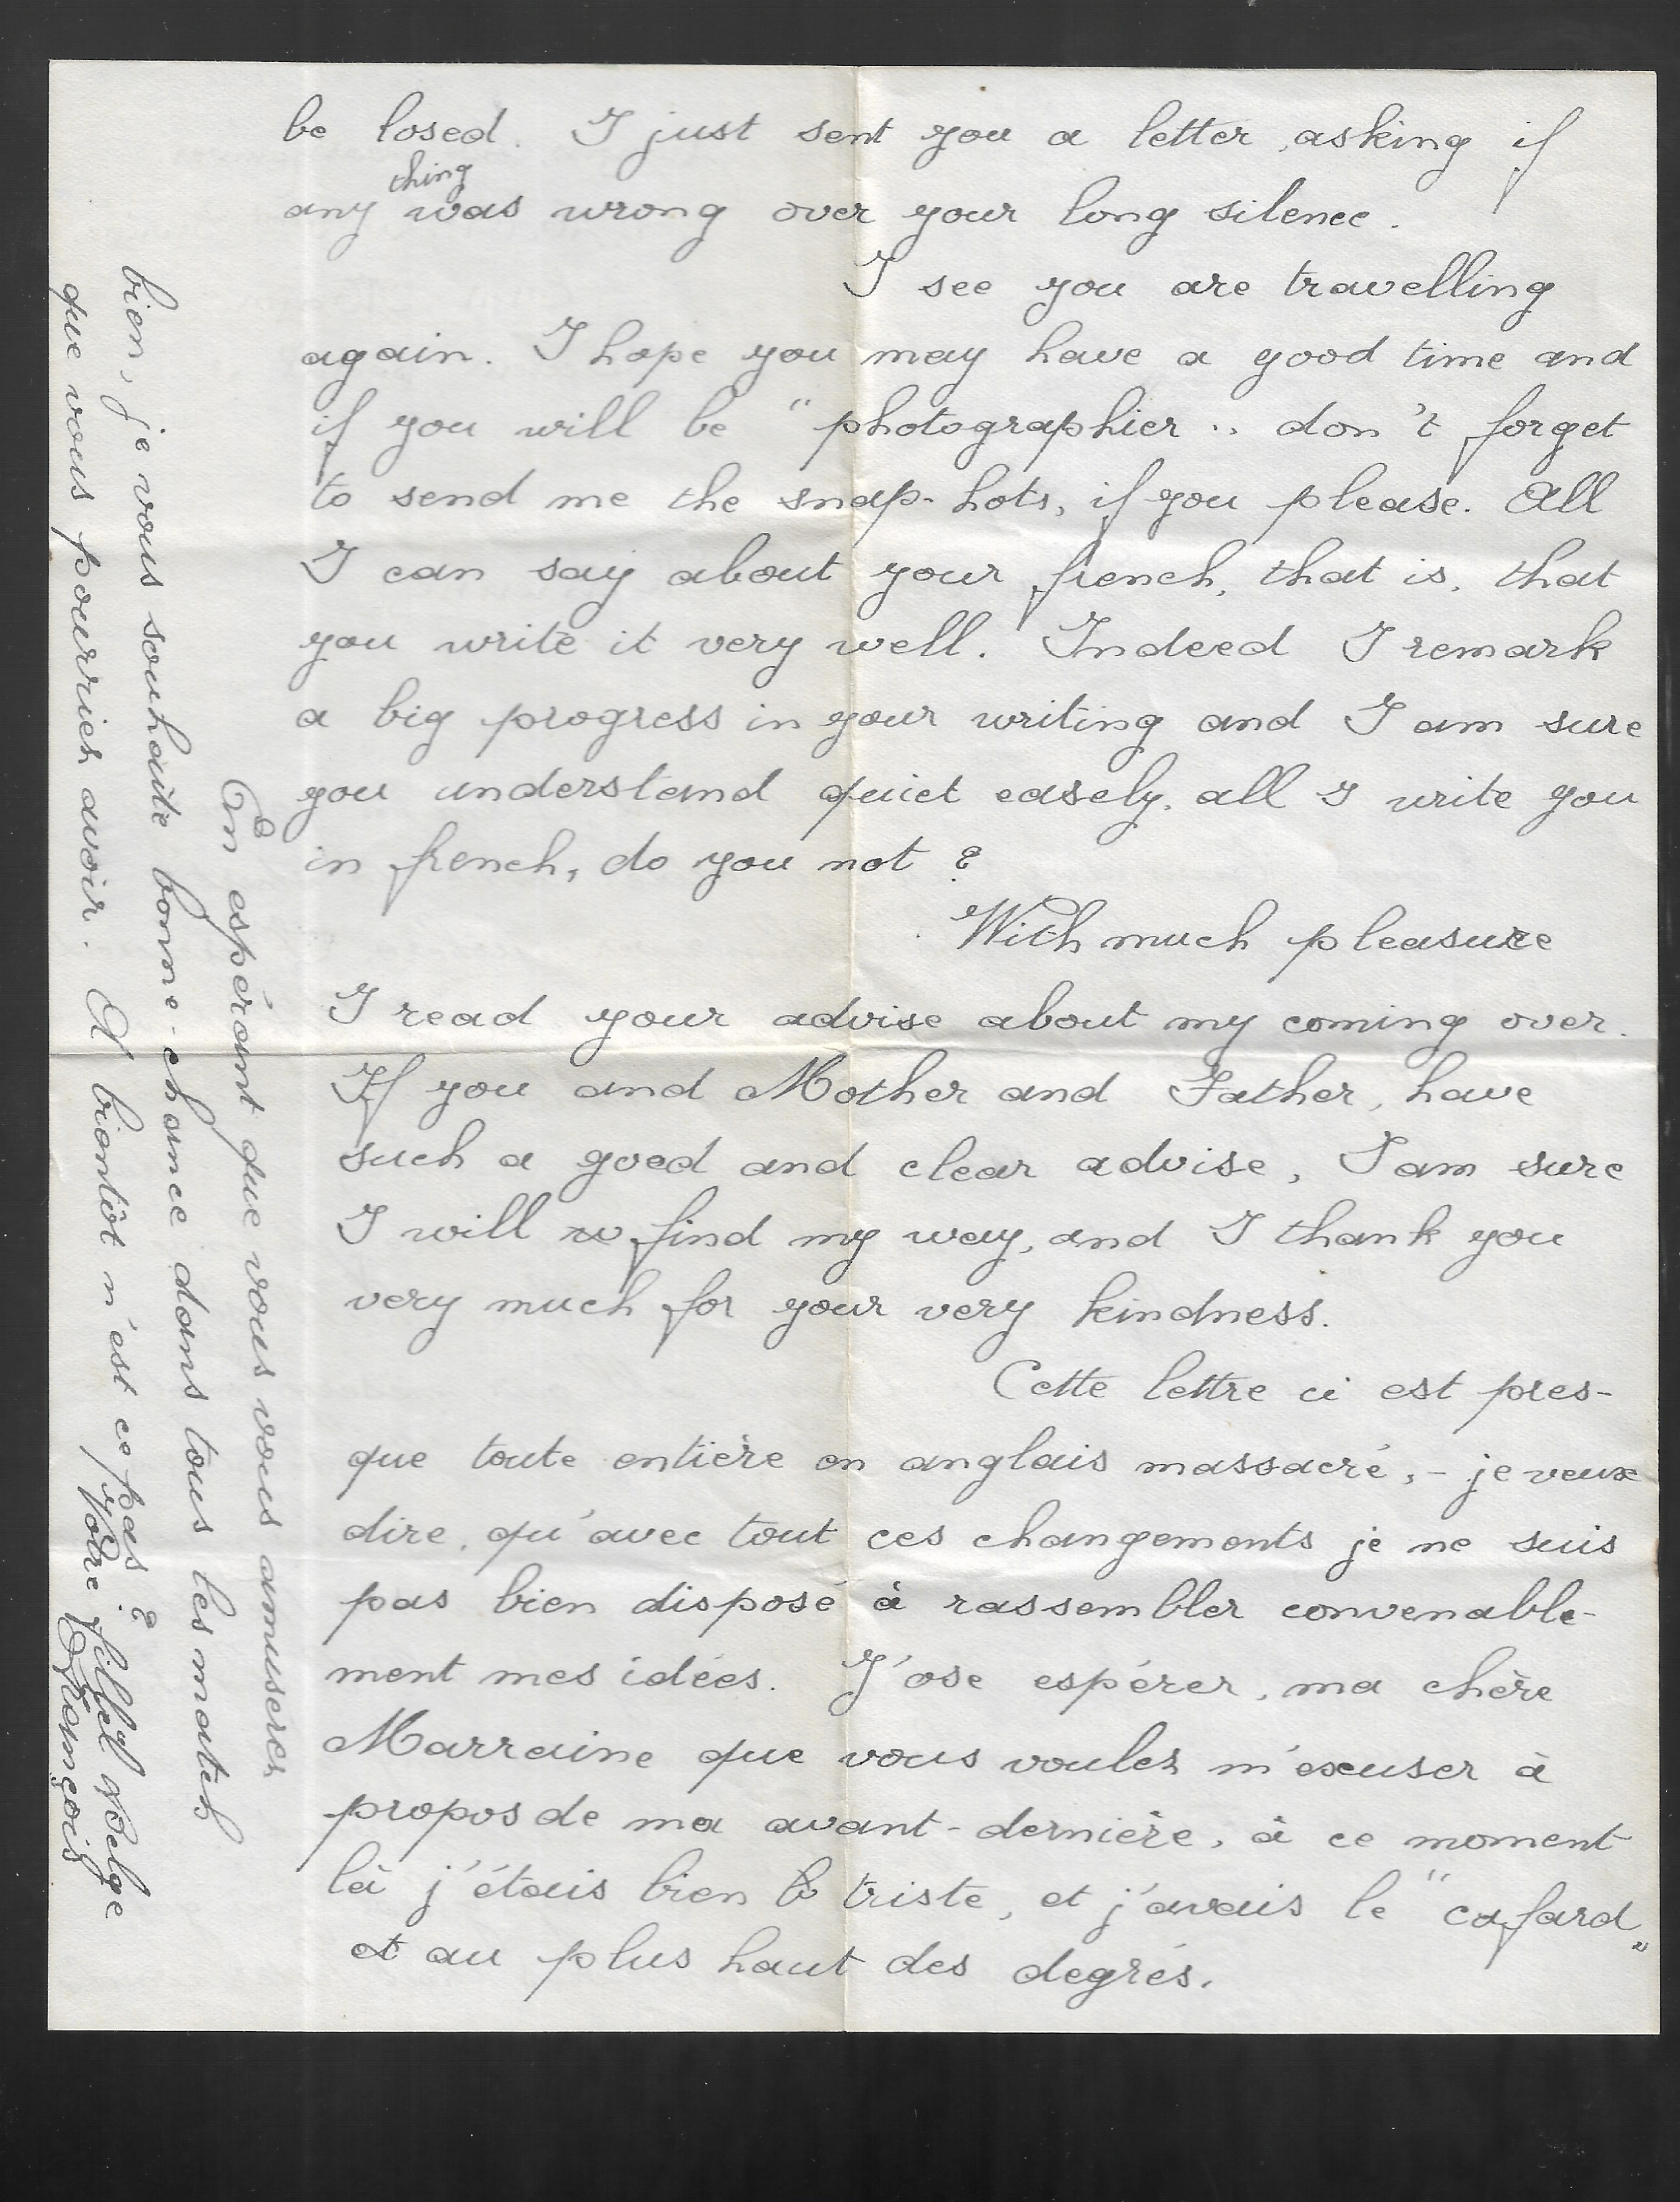 be losed. I just sent you a letter, asking if
anything was wrong over your long silence.
I see you are travelling
again. I hope you may have a good time and
if you will be "photographier" don't forget
to send me the snap-hots, if you please. All
I can say about your french, that is, that
you write it very well. Indeed I remark
a big progress in your writing and I am sure
you understand quiet easely, all I write you
in french, do you not?
With much pleasure
I read your advise about my coming over.
If you and Mother and Father, have
such a good and clear advise, I am sure
I will find my way, and I thank you
very much for your very kindness.
Cette lettre ci est pres-
que toute entière en anglais massacré, - je veux
dire, qu'avec tout ces changements je ne suis
pas bien disposé à rassembler convenable-
ment mes idées. J'ose espérer, ma chère
Marraine que vous voulez m'excuser à
propos de ma avant-dernière, à ce moment
là j'étais bien triste, et j'avais le "cafard"
et au plus haut des degrés.
En espérant que vous vous amuserez
bien, je vous souhaite bonne-chance dans tous les match
que vous pourriez avoir. A bientôt n'est ce pas?
Votre filleul belge
François